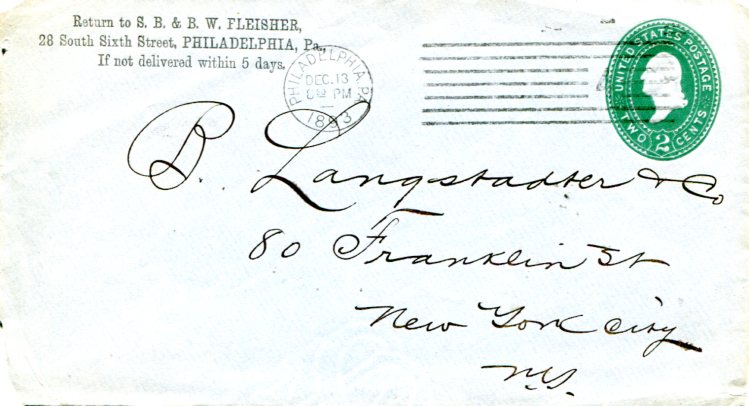 Return to S. B. & B. W. FLEISHER,
28 South Sixth Street, PHILADELPHIA, Pa.,
If not delivered within 5 days.
PHILADELPHIA PA
DEC. 13
PM
1893
UNITED STATES POSTAGE
TWO 2 CENTS
B. Langstadter & Co
80 Franklin St
New York City
N.Y.